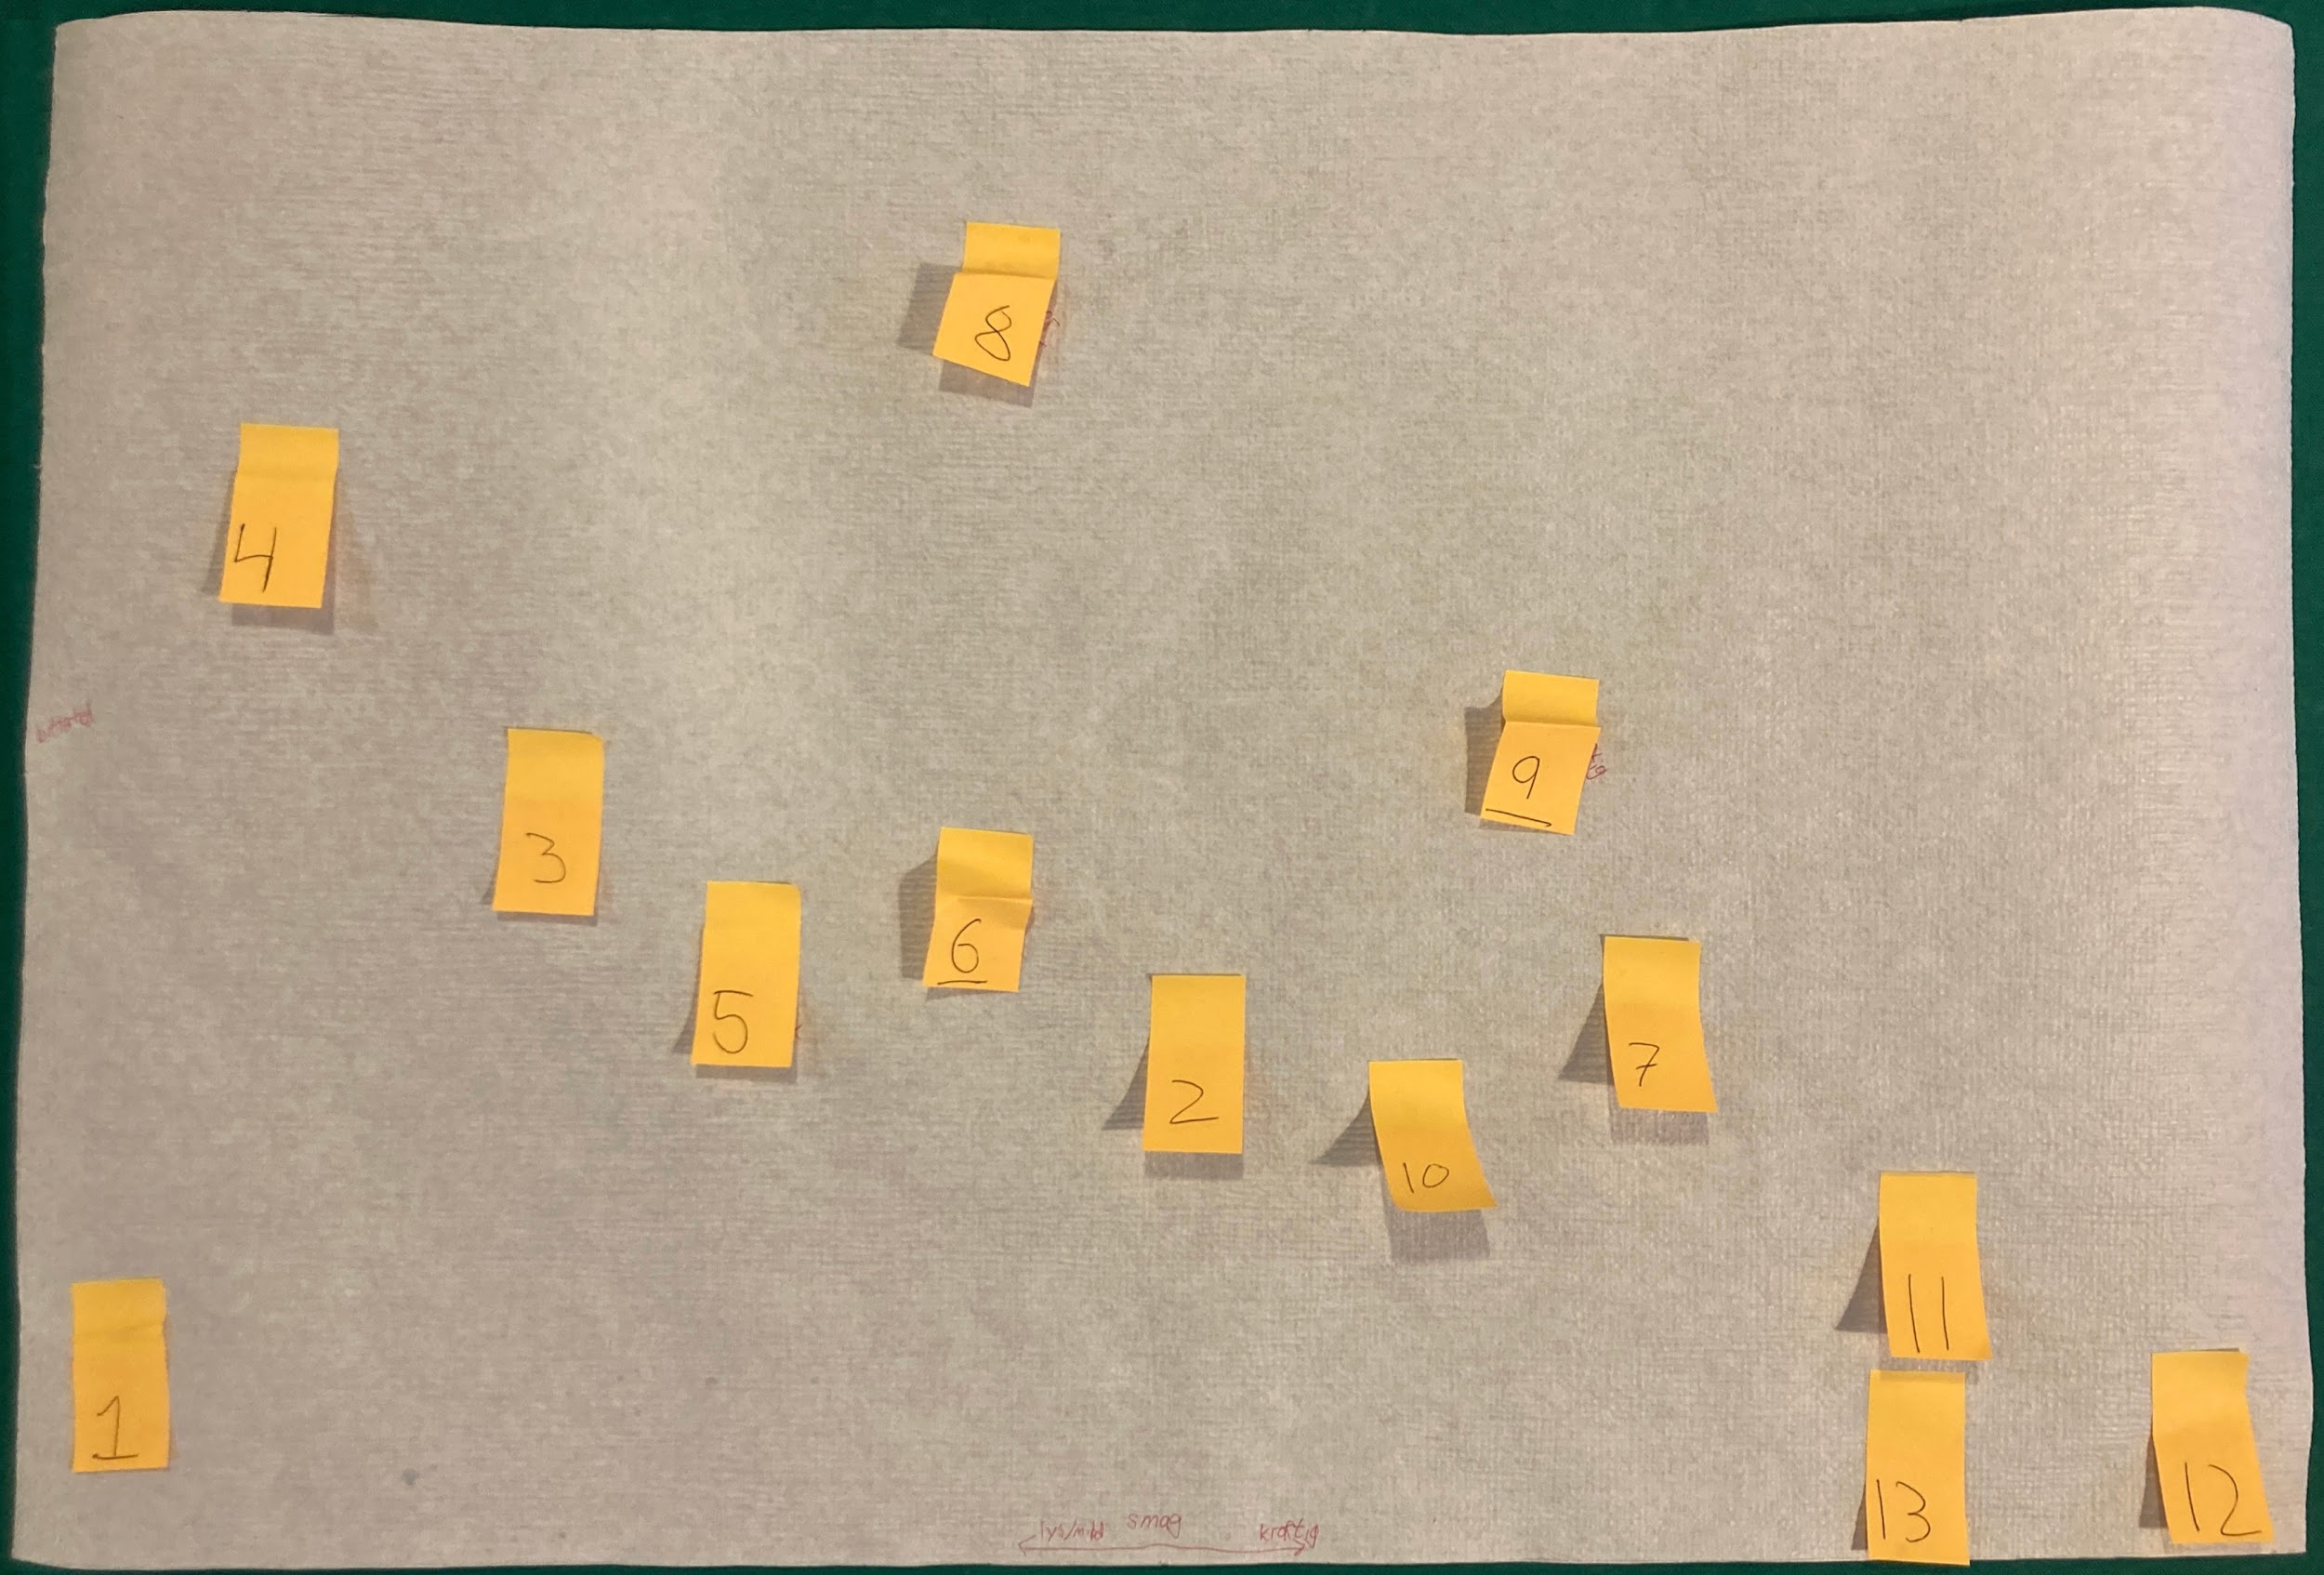 8
4
9
3
6
5
7
2
10
11
1
13
12
lys/mild smag kraftig